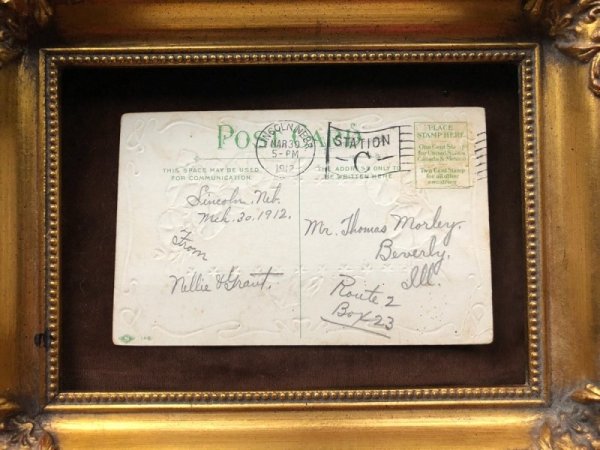 POST CARD
LINCOLN, NEBR.
MAR 30
5-PM
1912
STATION
C
PLACE
STAMP HERE
One Cent Stamp
for United States
Canada & Mexico
Two Cent Stamp
for all other
countries
THIS SPACE MAY BE USED
FOR COMMUNICATION.
THE ADDRESS ONLY TO
BE WRITTEN HERE
Lincoln, Neb.
Mch. 30, 1912.
From
Nellie & Grant.
Mr. Thomas Morley,
Beverly,
Ill.
Route 2
Box 23